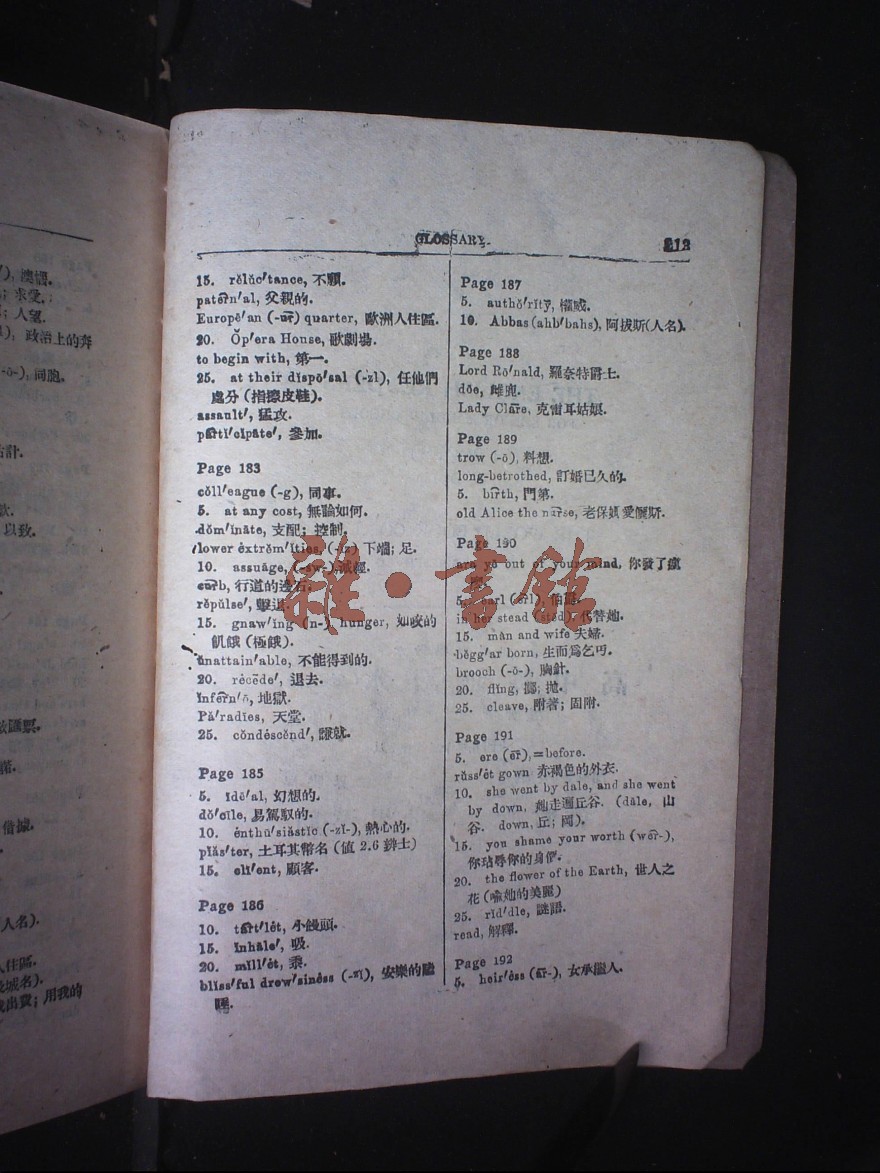 GLOSSARY
213
15. rĕlŭc′tance, 不願.
patẽrn′al, 父親的.
Europē′an (-ur) quarter, 歐洲人住區.
20. Ŏp′era House, 歌劇場.
to begin with, 第一.
25. at their dĭspō′sal (-zl), 任他們
處分 (指擦皮鞋).
assault′, 猛攻.
partĭ′cĭpāte′, 參加.
Page 183
cŏll′eague (-g), 同事.
5. at any cost, 無論如何.
dŏm′ĭnāte, 支配; 控制.
lower ĕxtrĕm′ĭtĭes, (-ĭz) 下端; 足.
10. assuāge, (-sw-), 減輕.
curb, 行道的邊石.
rĕpŭlse′, 擊退.
15. gnaw′ĭng (n-), hunger, 如咬的
飢餓 (極餓).
ŭnattaĭn′able, 不能得到的.
20. rĕcēde′, 退去.
ĭnfẽrn′ō, 地獄.
Pă′radīes, 天堂.
25. cŏndĕscĕnd′, 謙就.
Page 185
5. īdē′al, 幻想的.
dŏ′cīle, 易駕馭的.
10. ĕnthū′sĭăstĭc (-zĭ-), 熱心的.
pĭăs′ter, 土耳其幣名 (值 2.6 辨士)
15. clī′ent, 顧客.
Page 186
10. tart′lĕt, 小饅頭.
15. ĭnhāle′, 吸.
20. mĭll′ĕt, 黍.
blĭss′ful drow′sinĕss (-zĭ), 安樂的瞌
睡.
Page 187
5. authŏ′rĭtў, 權威.
10. Abbas (ahb′bahs), 阿拔斯(人名).
Page 188
Lord Rŏ′nald, 羅奈特爵士.
dōe, 雌鹿.
Lady Clāre, 克雷耳姑娘.
Page 189
trow (-ō), 料想.
long-betrothed, 訂婚已久的.
5. birth, 門第.
old Alice the nurse, 老保姆愛儷斯.
Page 190
are yē out of your mind, 你發了瘋
5. earl (ẽrl), 伯爵.
in her stead (stĕd), 代替她.
15. măn and wife 夫婦.
bĕgg′ar born, 生而爲乞丐.
brooch (-ō-), 胸針.
20. flĭng, 擲; 拋.
25. cleave, 附著; 固附.
Page 191
5. ere (ẽr), =before.
rŭss′ĕt gown 赤褐色的外衣.
10. she went by dale, and she went
by down, 她走遍丘谷. (dāle, 山
谷. down, 丘; 岡).
15. you shame your worth (wẽr-),
你玷辱你的身價.
20. the flower of the Earth, 世人之
花 (喻她的美麗)
25. rĭd′dle, 謎語.
read, 解釋.
Page 192
5. heir′ĕss (ār-), 女承繼人.
雜·書館